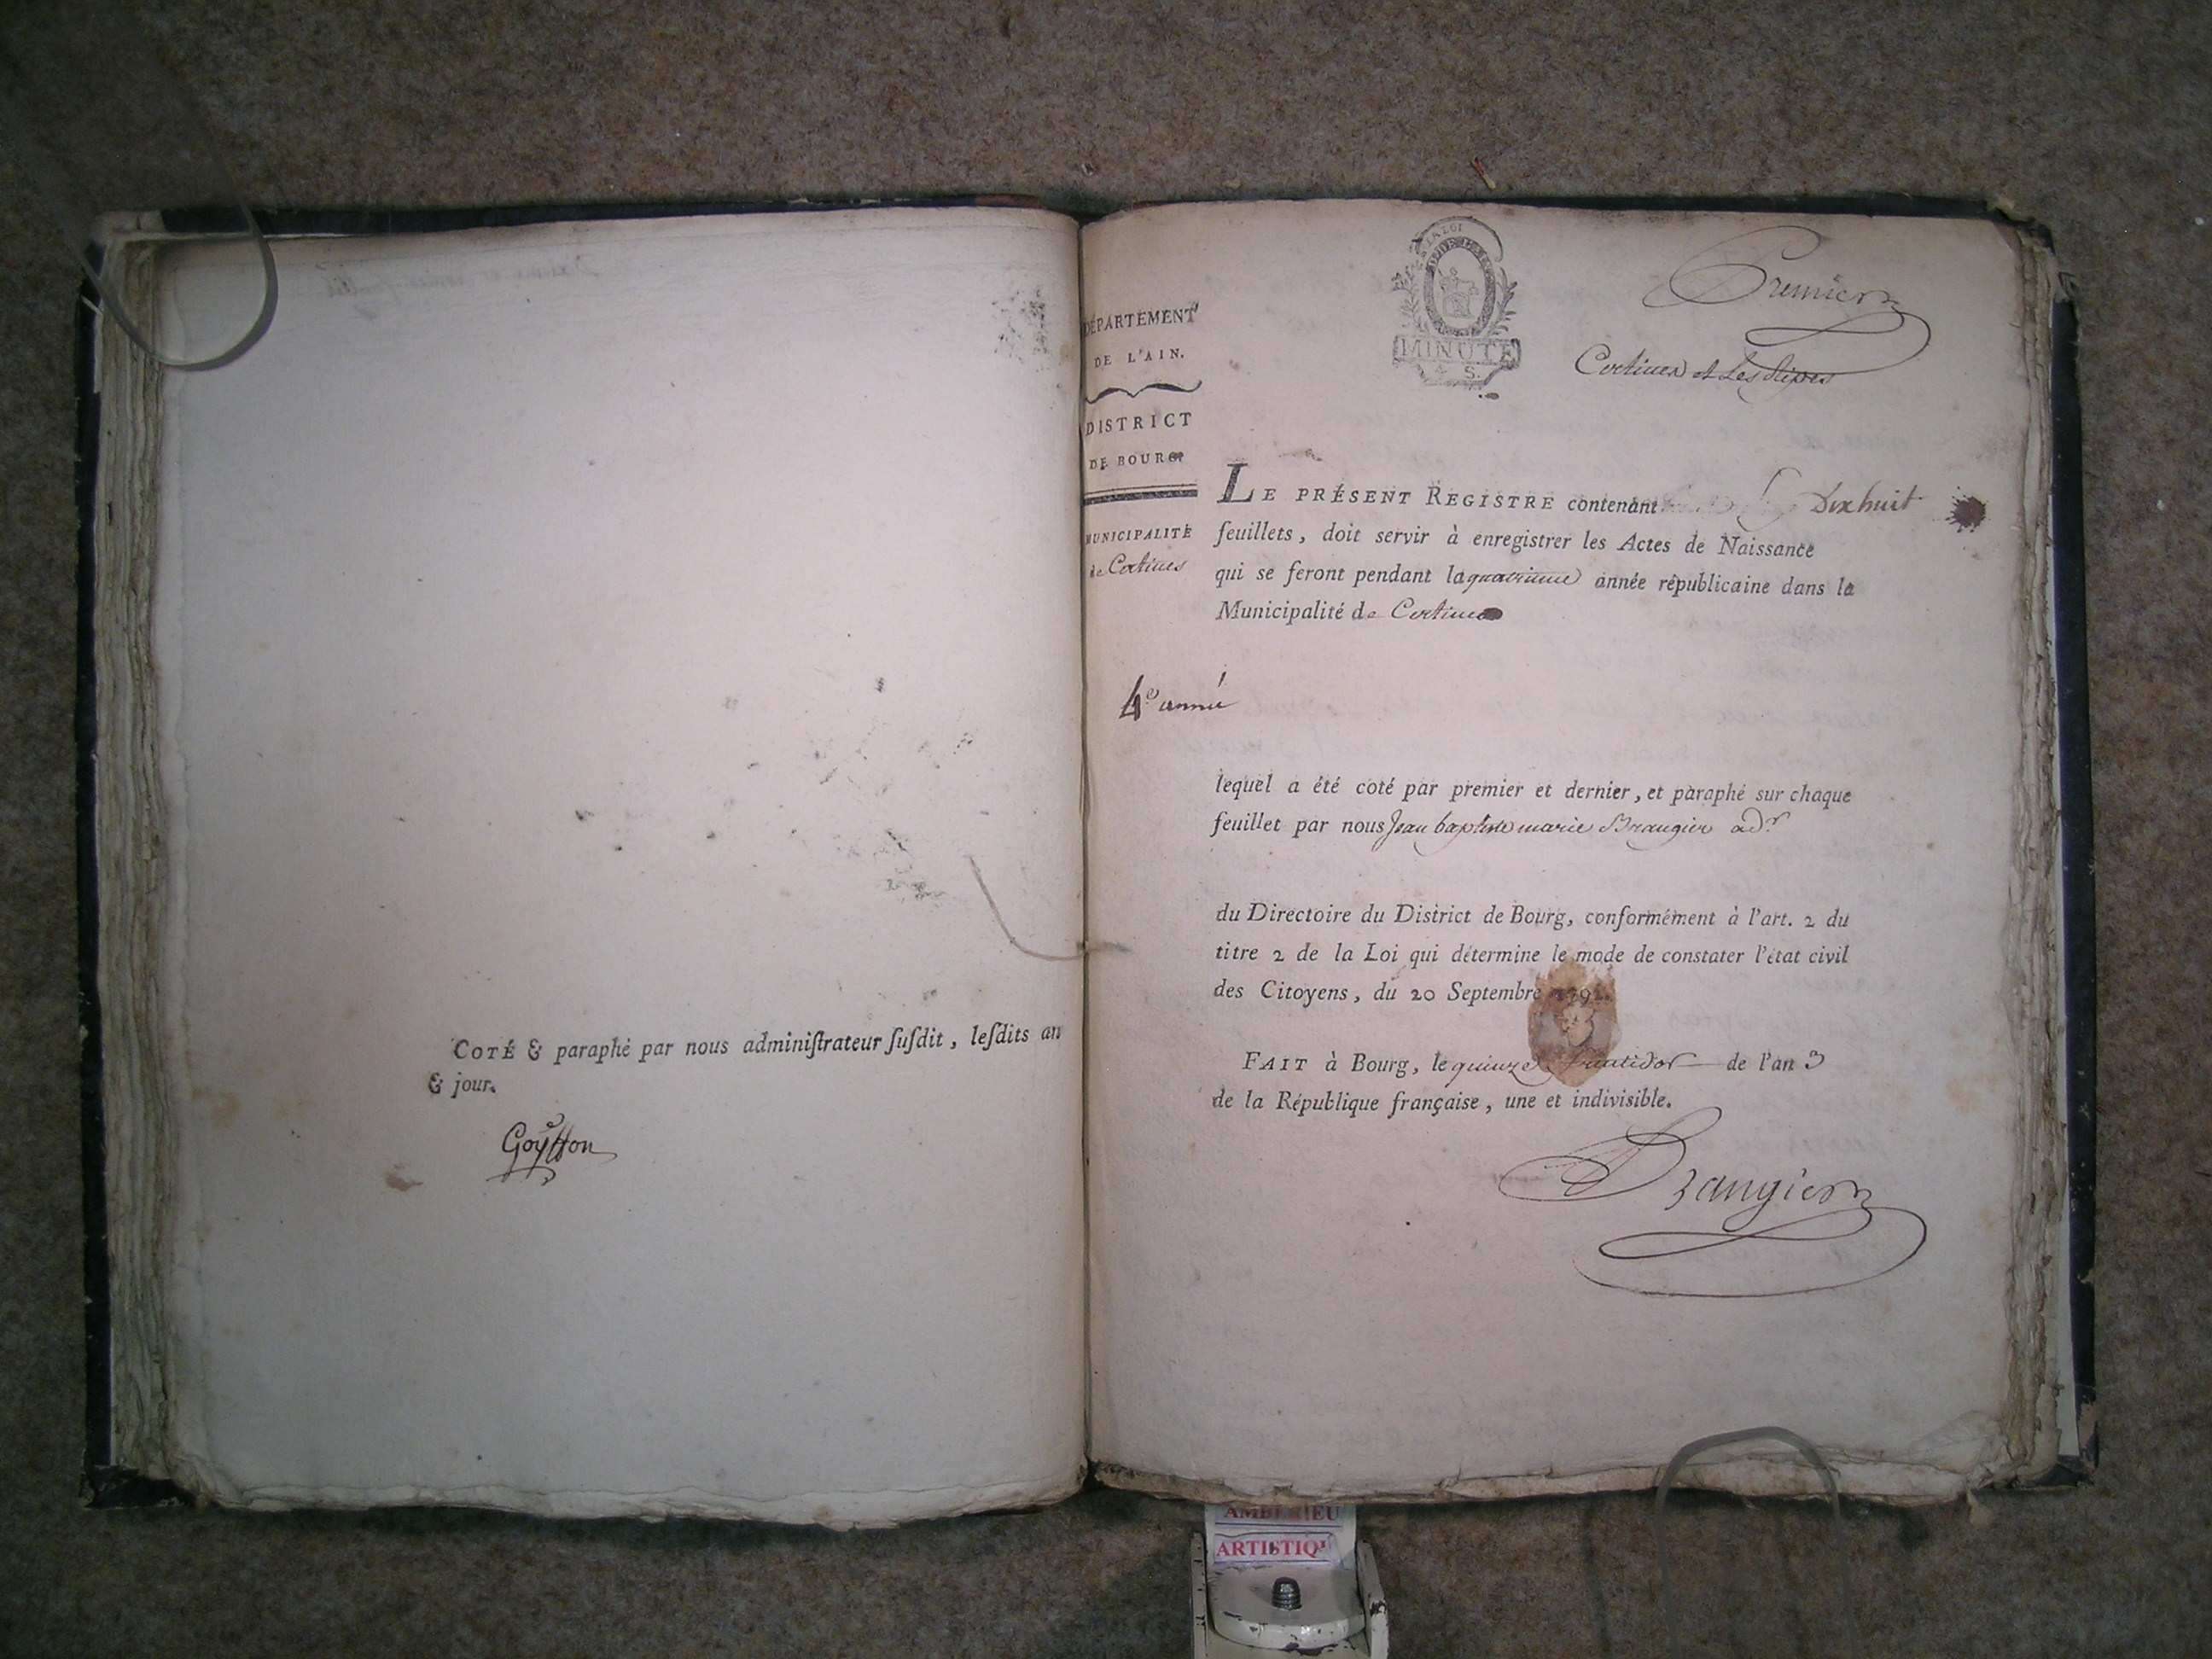 COTÉ & paraphé par nous adminiſtrateur ſuſdit, leſdits an
& jour.
Goyffon
DÉPARTEMENT
DE L'AIN.
DISTRICT
DE BOURG
MUNICIPALITÉ
de Certines
LA LOI
MINUTE
4 S.
Premier
Certines et Les Rippes
LE PRÉSENT REGISTRE contenant Dix huit
feuillets, doit servir à enregistrer les Actes de Naissance
qui se feront pendant la quatrieme année républicaine dans la
Municipalité de Certines
4e année
lequel a été coté par premier et dernier, et paraphé sur chaque
feuillet par nous Jean baptiste marie Brangier adr
du Directoire du District de Bourg, conformément à l'art. 2 du
titre 2 de la Loi qui détermine le mode de constater l'état civil
des Citoyens, du 20 Septembre 1792.
FAIT à Bourg, le quinze fructidor de l'an 3
de la République française, une et indivisible.
Brangier
AMBERIEU
ARTISTIQ